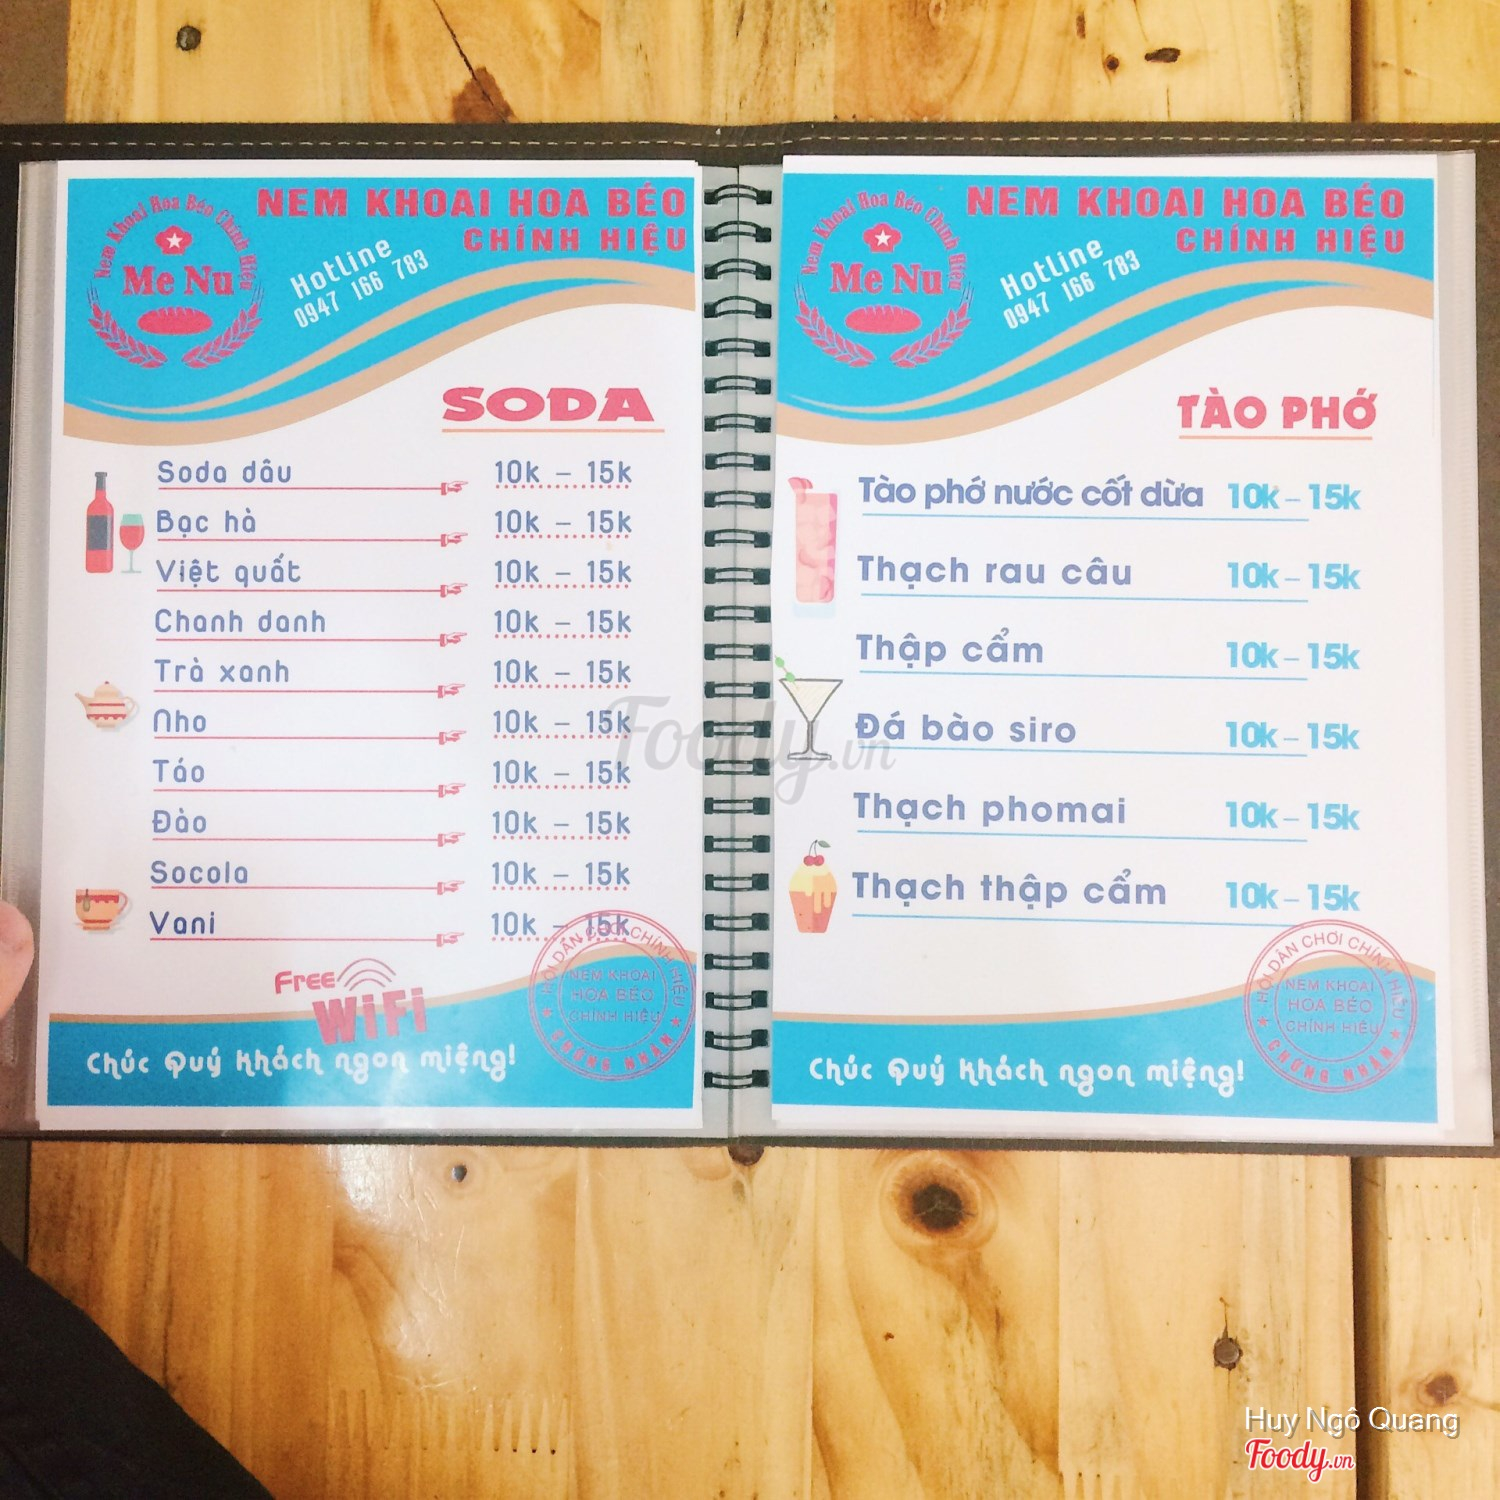 NEM KHOAI HOA BÉO
CHÍNH HIỆU
Nem Khoai Hoa Béo Chính Hiệu
Me Nu
Hotline
0947 166 783
SODA
Soda dâu 10k – 15k
Bạc hà 10k – 15k
Việt quất 10k – 15k
Chanh danh 10k – 15k
Trà xanh 10k – 15k
Nho 10k – 15k
Táo 10k – 15k
Đào 10k – 15k
Socola 10k – 15k
Vani 10k – 15k
Free
WiFi
Chúc Quý khách ngon miệng!
HỘI DÂN CHƠI CHÍNH HIỆU
NEM KHOAI
HOA BÉO
CHÍNH HIỆU
CHỨNG NHẬN
NEM KHOAI HOA BÉO
CHÍNH HIỆU
Nem Khoai Hoa Béo Chính Hiệu
Me Nu
Hotline
0947 166 783
TÀO PHỚ
Tào phớ nước cốt dừa 10k – 15k
Thạch rau câu 10k – 15k
Thập cẩm 10k – 15k
Đá bào siro 10k – 15k
Thạch phomai 10k – 15k
Thạch thập cẩm 10k – 15k
Chúc Quý khách ngon miệng!
HỘI DÂN CHƠI CHÍNH HIỆU
NEM KHOAI
HOA BÉO
CHÍNH HIỆU
CHỨNG NHẬN
Foody.vn
Huy Ngô Quang
Foody.vn